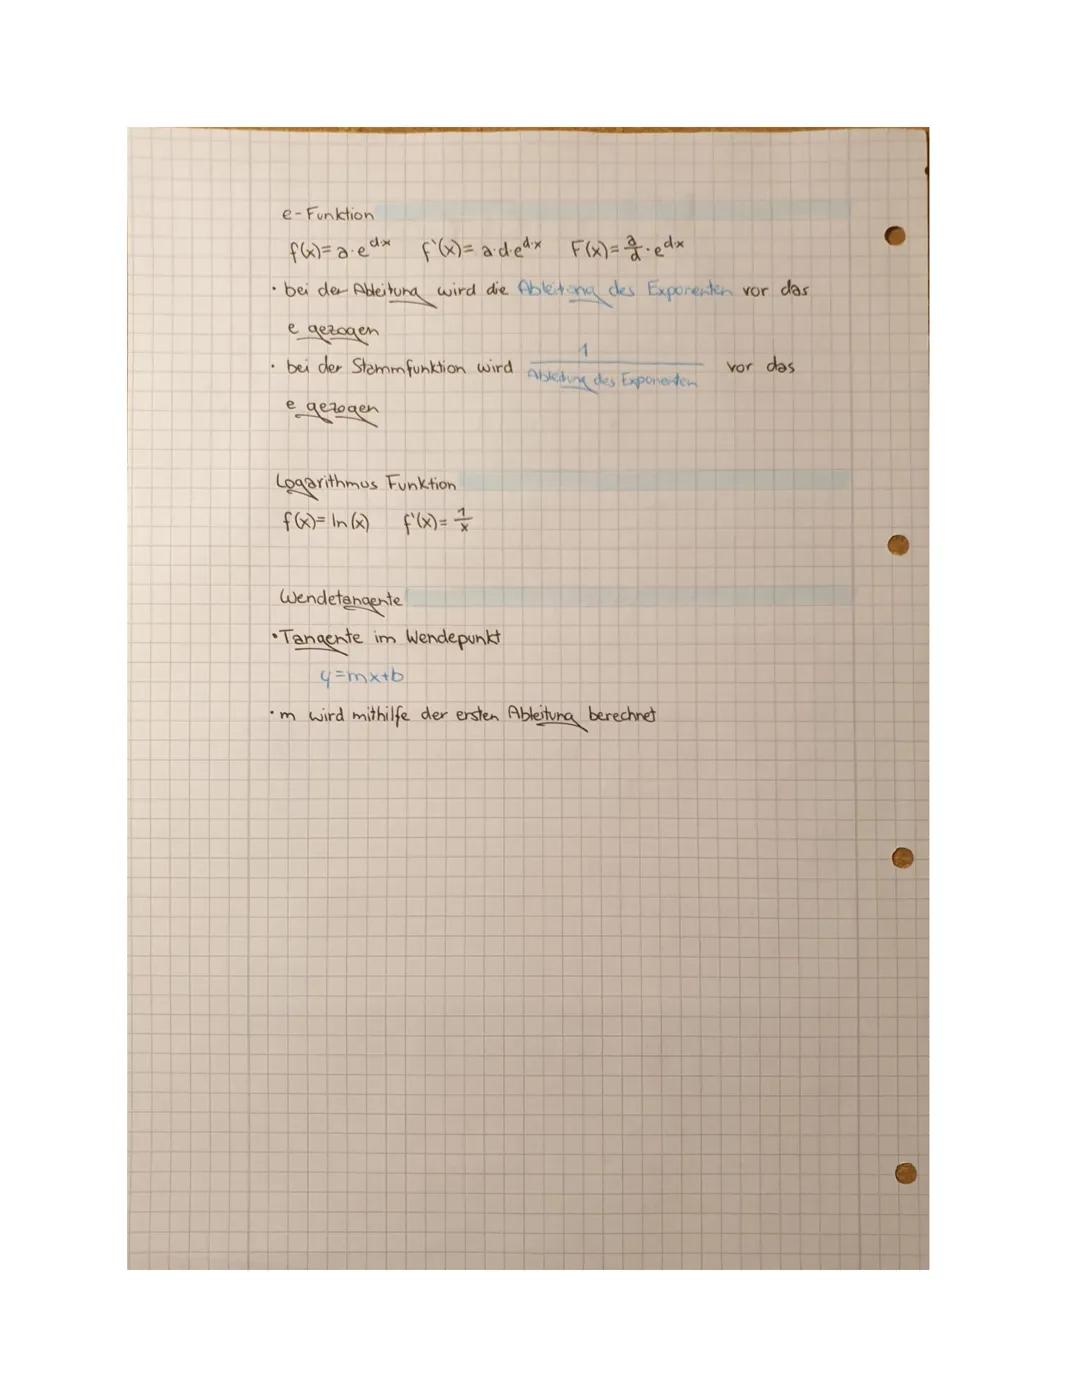 e-Funktion
f(x)= a·e^dx f'(x)= a·d·e^d·x F(x)= a/d · e^dx
· bei der Ableitung wird die Ableitung des Exponenten vor das
e gezogen
· bei der Stammfunktion wird 1/Ableitung des Exponenten vor das
e gezogen
Logarithmus Funktion
f(x)= ln(x) f'(x)= 1/x
Wendetangente
· Tangente im Wendepunkt
y=mx+b
· m wird mithilfe der ersten Ableitung berechnet